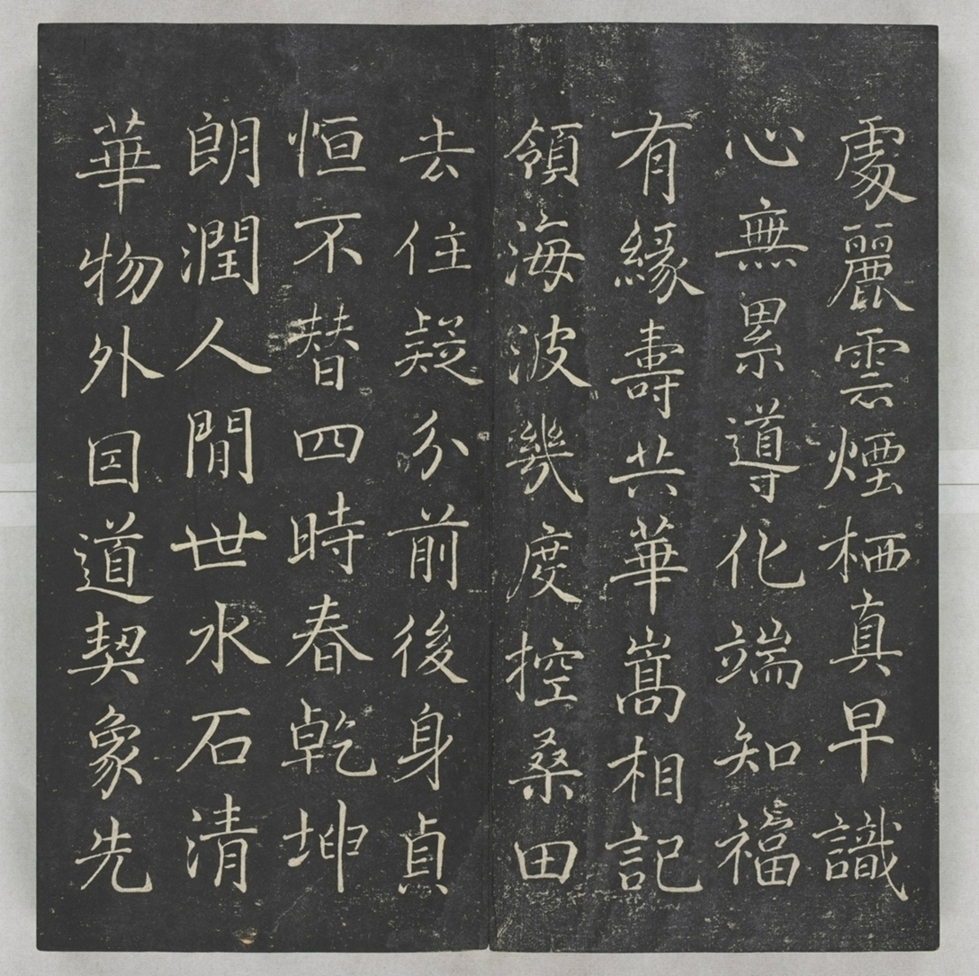 處麗雲煙栖真早識
心無累導化端知福
有緣壽共華嵩相記
領海波幾度控桑田
去住疑分前後身貞
恒不替四時春乾坤
朗潤人間世水石清
華物外因道契象先